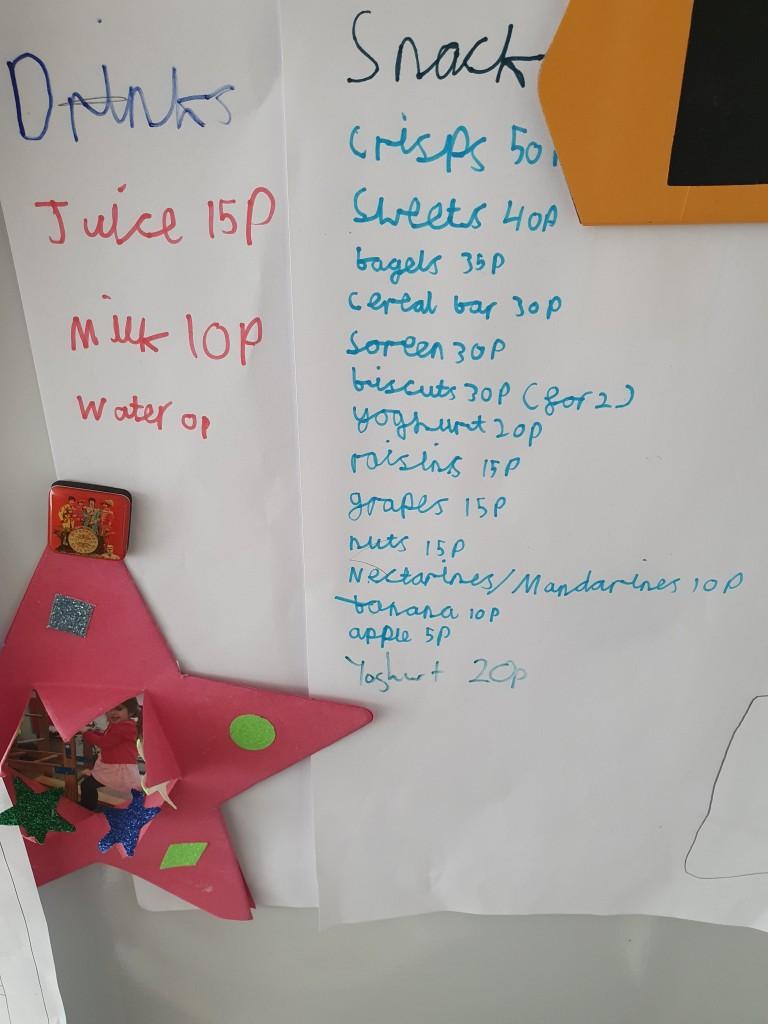 Drinks
Juice 15P
Milk 10P
Water 0p
Snack
Crisps 50p
Sweets 40P
bagels 35P
cereal bar 30P
Soreen 30P
biscuts 30P (for 2)
yoghurt 20p
raisins 15P
grapes 15P
nuts 15p
Nectarines/Mandarines 10P
banana 10P
apple 5P
Yoghurt 20p